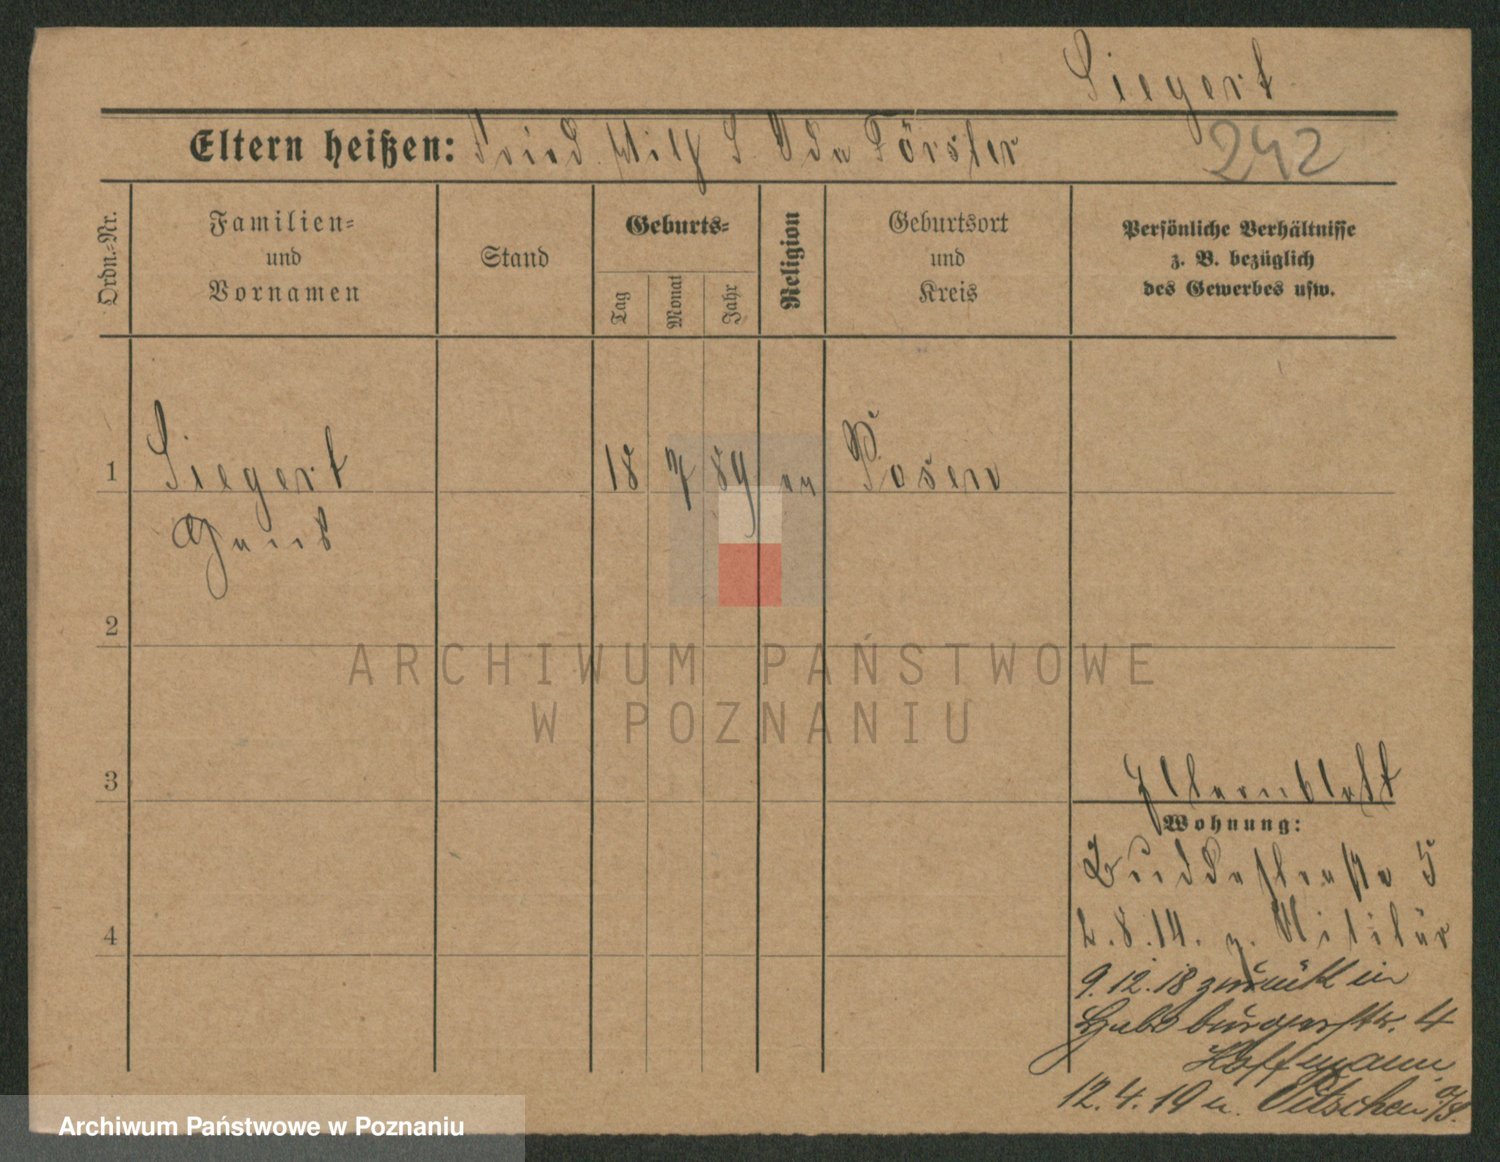 Siegert
Eltern heißen: Fried. Wilh S. Ida Förster
242
Ordn.=Nr.
Familien=
und
Vornamen
Stand
Geburts=
Tag
Monat
Jahr
Religion
Geburtsort
und
Kreis
Persönliche Verhältnisse
z. B. bezüglich
des Gewerbes usw.
1 Siegert 18 7 89 ev Posen
Hans
2
3
Elternblatt
Wohnung:
Buddestraße 5
2.8.14. z. Militär
9.12.18 zurück in
Habsburgerstr. 4
Hoffmann
12.4.19 n. Pitschen O/S.
4
ARCHIWUM PAŃSTWOWE
W POZNANIU
Archiwum Państwowe w Poznaniu